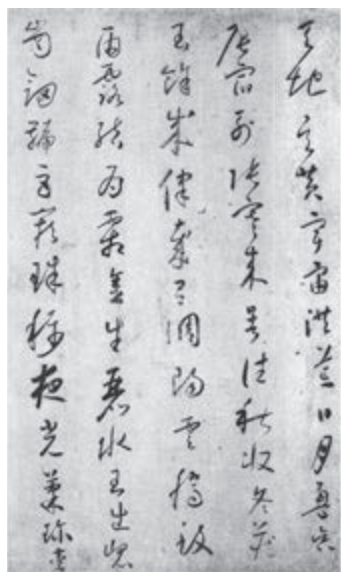 天地玄黄宇宙洪荒日月盈昃
辰宿列張寒来暑往秋收冬蔵
閏餘成律歲吕調陽雲騰致
雨露結為霜金生麗水玉出崐
崗劒號巨闕珠稱夜光菓珍李